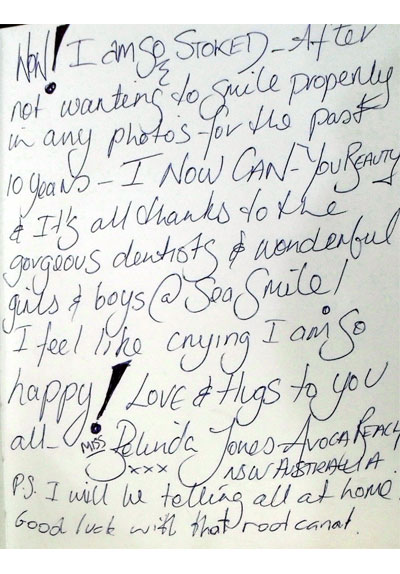 Now! I am so STOKED - After
not wanting to smile properly
in any photo's for the past
10 years - I NOW CAN - YOU BEAUTY
& It's all thanks to the
gorgeous dentists & wonderful
girls & boys @ Sea Smile!
I feel like crying I am so
happy! LOVE & Hugs to you
all - MISS Belinda Jones - AVOCA BEACH
xxx NSW AUSTRALIA.
P.S. I will be telling all at home.
Good luck with that root canal.